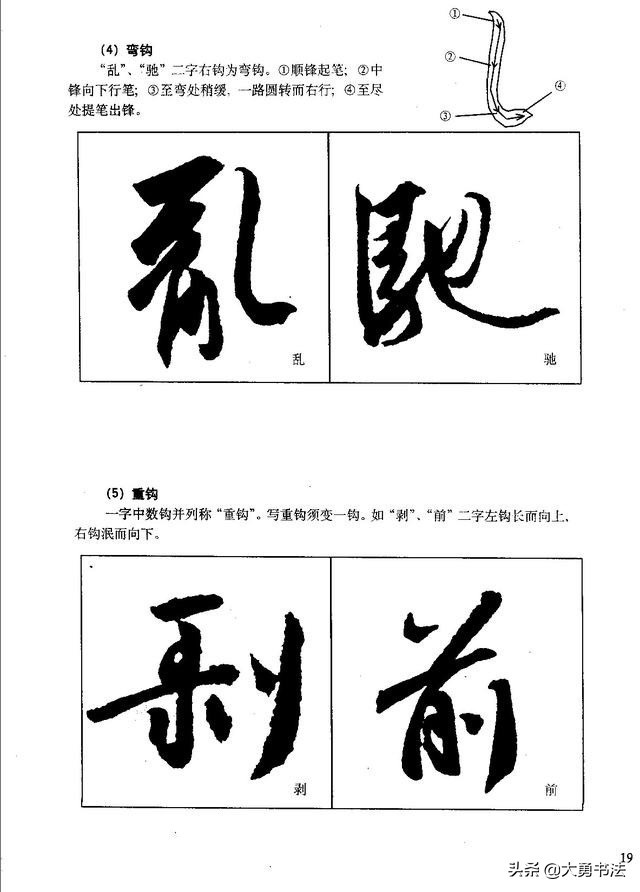 (4) 弯钩
“乱”、“驰”二字右钩为弯钩。①顺锋起笔；②中
锋向下行笔；③至弯处稍缓，一路圆转而右行；④至尽
处提笔出锋。
①
②
③
④
亂
馳
乱
驰
(5) 重钩
一字中数钩并列称“重钩”。写重钩须变一钩。如“剥”、“前”二字左钩长而向上，
右钩泯而向下。
剥
前
剥
前
19
头条 @大勇书法